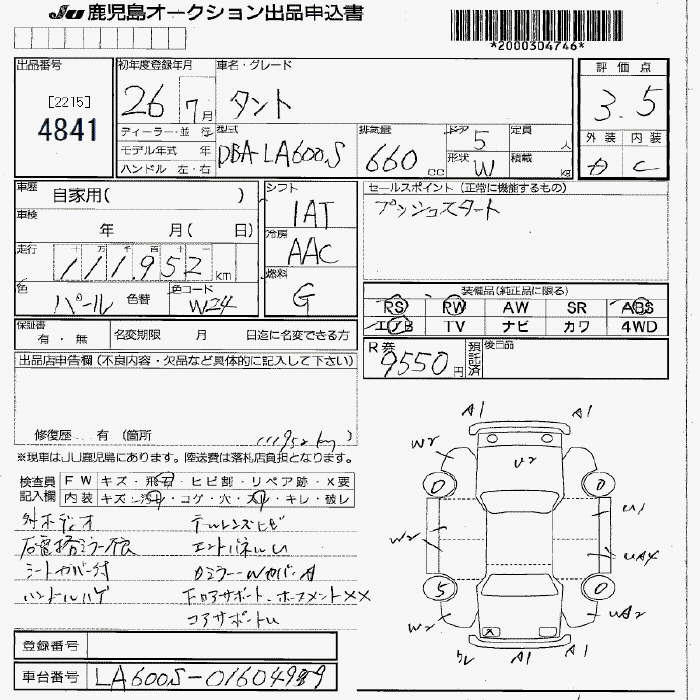 JU 鹿児島オークション出品申込書
*2000304746*
出品番号
[2215]
4841
初年度登録年月
26 7月
車名・グレード
タント
評価点
3.5
ディーラー・並 行
モデル年式 年
ハンドル 左・右
型式
DBA-LA600S
排気量
660cc
ドア
5
形状
W
定員
人
積載
kg
外装 内装
C
車歴
自家用( )
車検
年 月( 日)
走行
十 万 千 百 十 一
111,952km
色
パール
色替
色コード
W24
シフト
IAT
冷房
AAC
燃料
G
セールスポイント(正常に機能するもの)
プッシュスタート
装備品(純正品に限る)
RS RW AW SR ABS
エアB TV ナビ カワ 4WD
保証書
有・無
名変期限 月 日迄に名変できる方
R券
9550円
預託済
後日品
出品店申告欄(不良内容・欠品など具体的に記入して下さい)
修復歴 有 (箇所
111952km)
※現車はJU鹿児島にあります。陸送費は落札店負担となります。
検査員記入欄
FW キズ・飛石・ヒビ割・リペア跡・X要
内装 キズ・汚れ・コゲ・穴・スレ・キレ・破レ
テールレンズヒビ
シートカバー付
ハンドルハゲ
エンドパネルU
コアサポートU
A1 A1
W2 U2
0 0
U1
W2
UA4
5 0
W2 UA2
X
A1 A1
登録番号
車台番号
LA600S-0160499